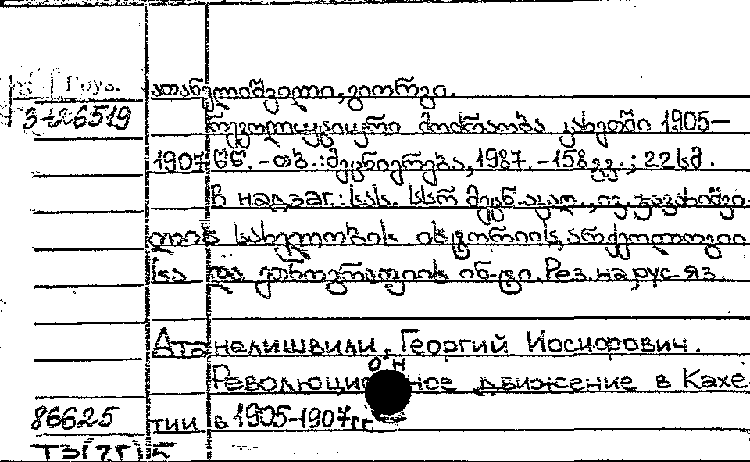 Груз.
ათანელიშვილი, გიორგი.
3-26519
რევოლუციური მოძრაობა კახეთში 1905–
1907 წწ. - თბ. : მეცნიერება, 1987. - 158 გვ. ; 22 სმ.
В надзаг.: საქ. სსრ მეცნ. აკად., ივ. ჯავახიშვი
ლის სახელობის ისტორიის, არქეოლოგი
სა და ეთნოგრაფიის ინ-ტი. Рез. на рус. яз.
Атанелишвили, Георгий Иосифович.
Революционное движение в Кахе
86625 тии в 1905-1907 гг.